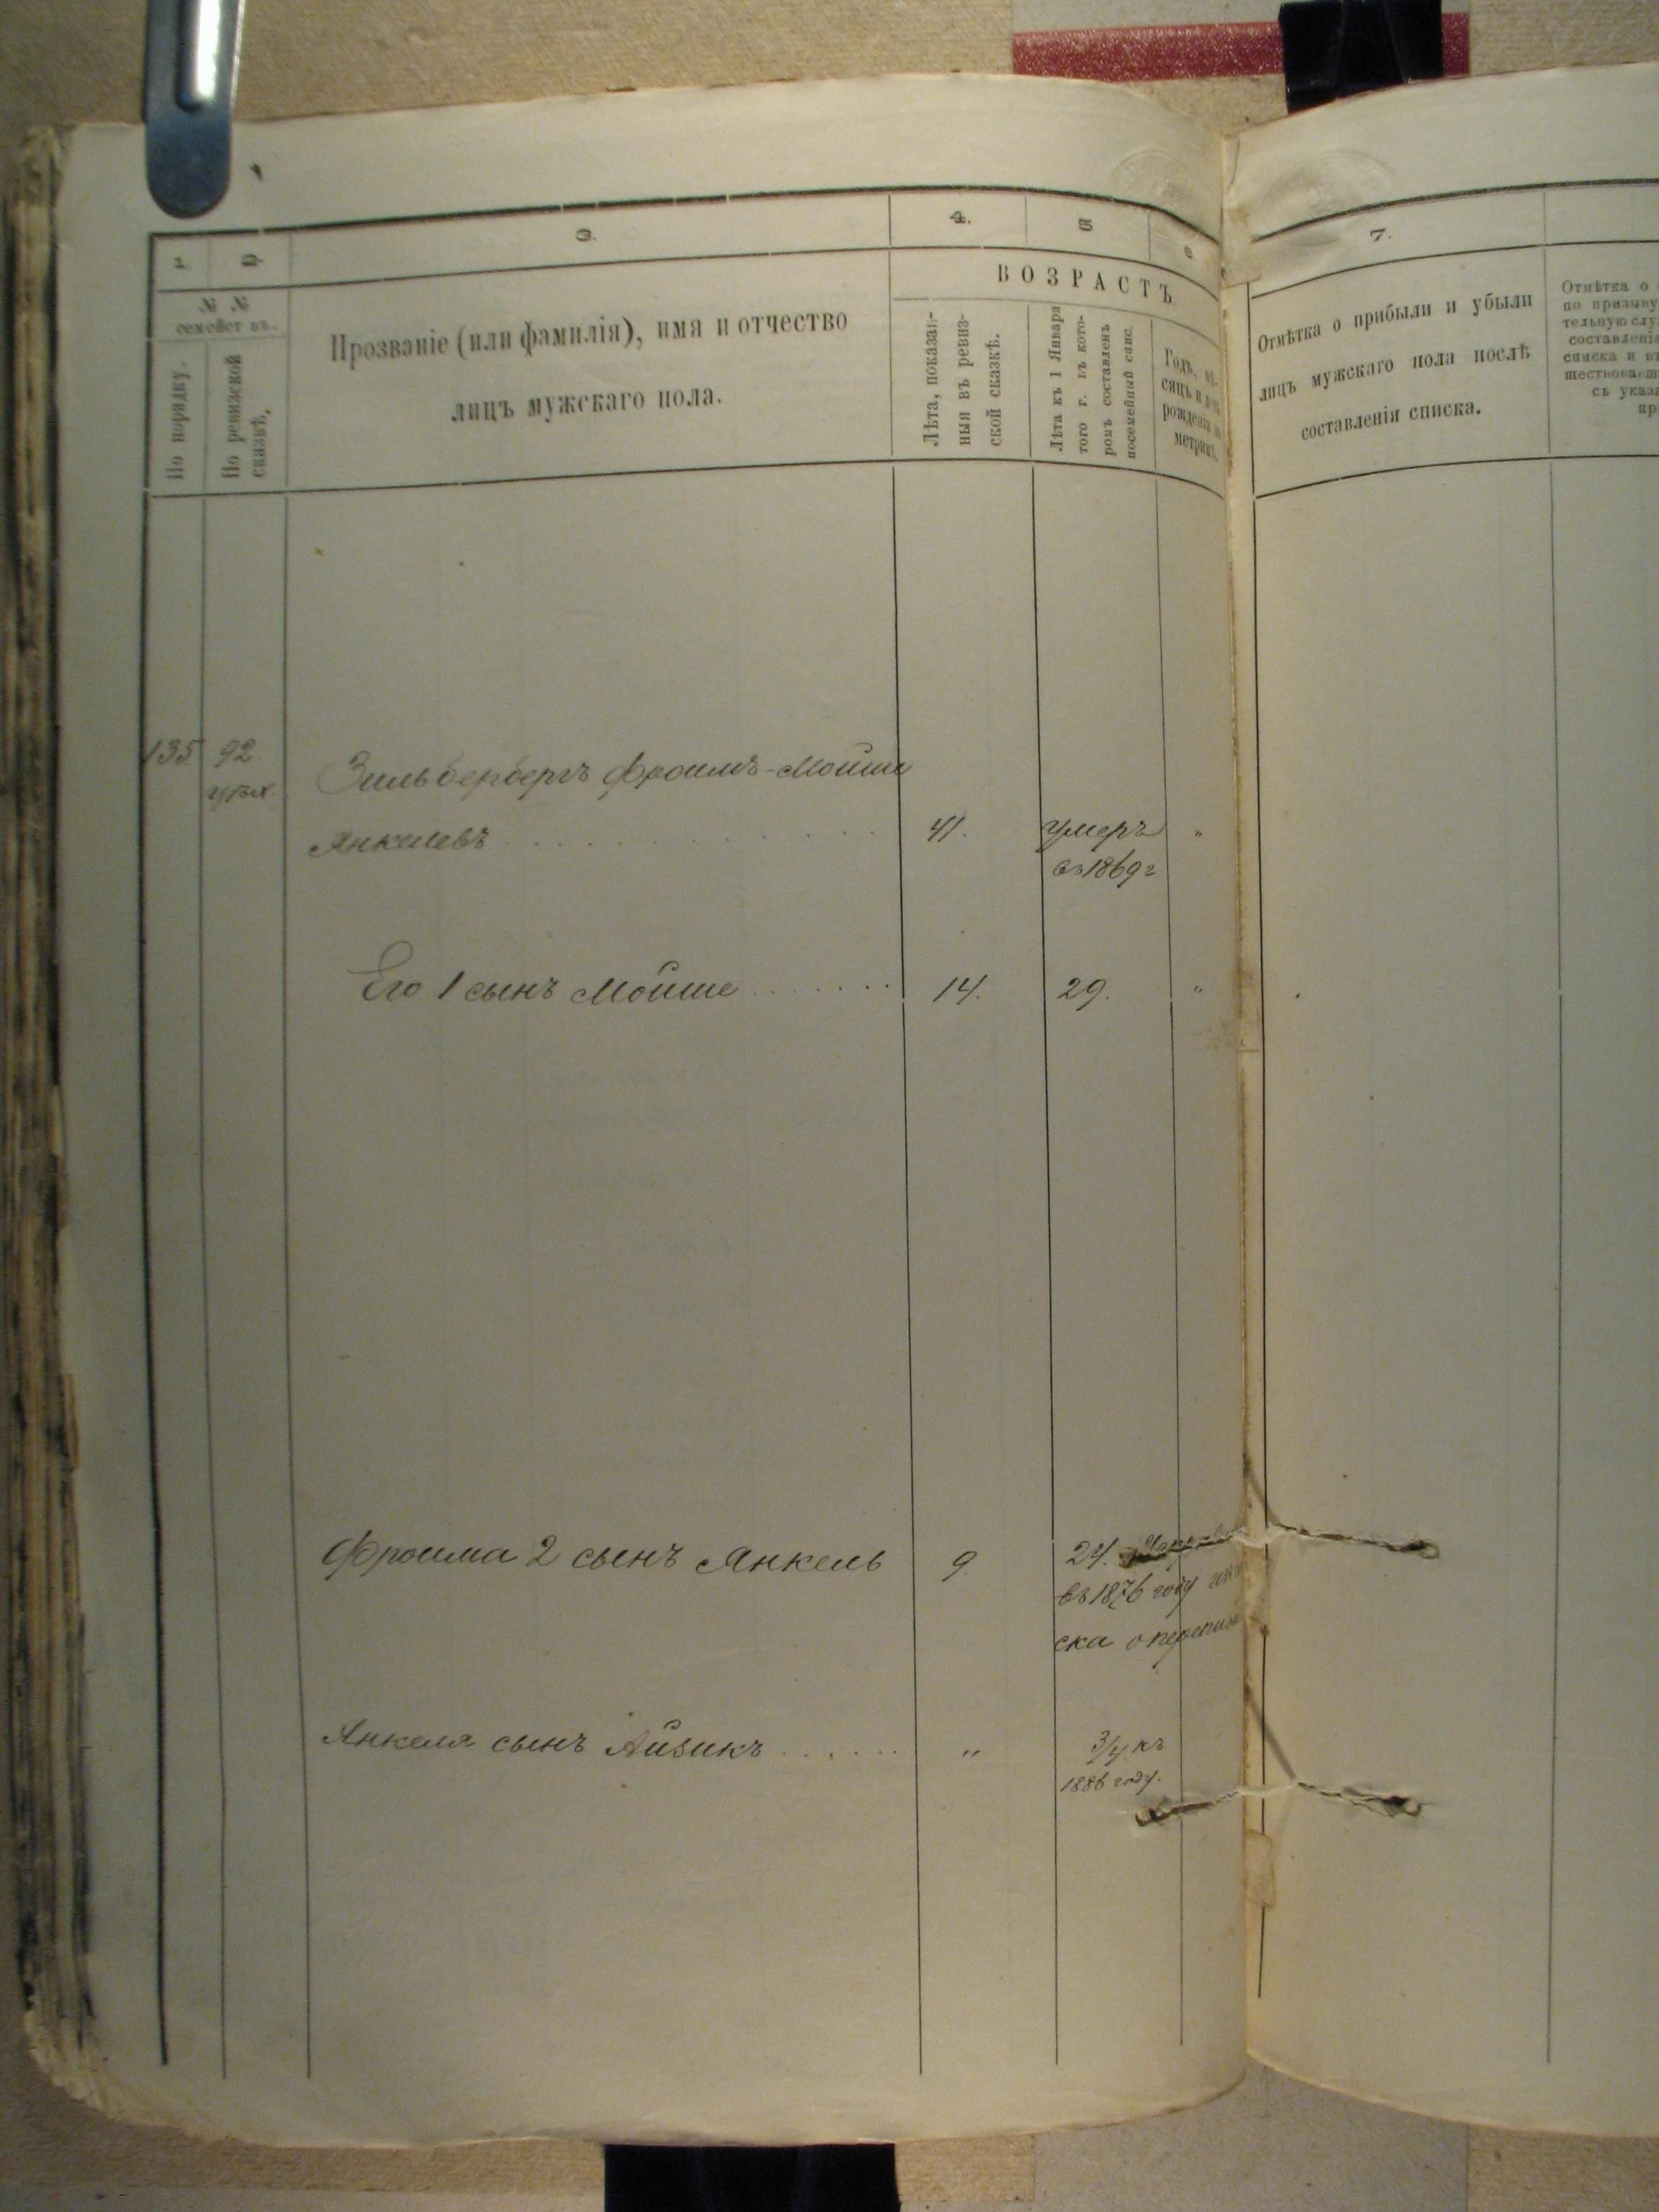 1 2 3. 4. 5 6
№ №
семействъ.
По порядку.
По ревизской
сказкѣ.
Прозваніе (или фамилія), имя и отчество
лицъ мужскаго пола.
ВОЗРАСТЪ
Лѣта, показан-
ныя въ ревиз-
ской сказкѣ.
Лѣта къ 1 Января
того г. въ кото-
ромъ составленъ
посемейный спис.
Годъ, мѣ-
сяцъ и день
рожденія по
метрикѣ.
135 92 Зильбербергъ Фроимъ-Мойше
Янкелевъ 41. умеръ "
въ 1869 г
Его 1 сынъ Мойше 14. 29. "
Фроима 2 сынъ Янкель 9. 24.
въ 1876 году
ска о
Янкеля сынъ Айзикъ " 3/4 къ
1886 году.
7.
Отмѣтка о прибыли и убыли
лицъ мужскаго пола послѣ
составленія списка.
Отмѣтка о
по призыву
тельную слу
составленія
списка и въ
шествовавш
съ указа
пр